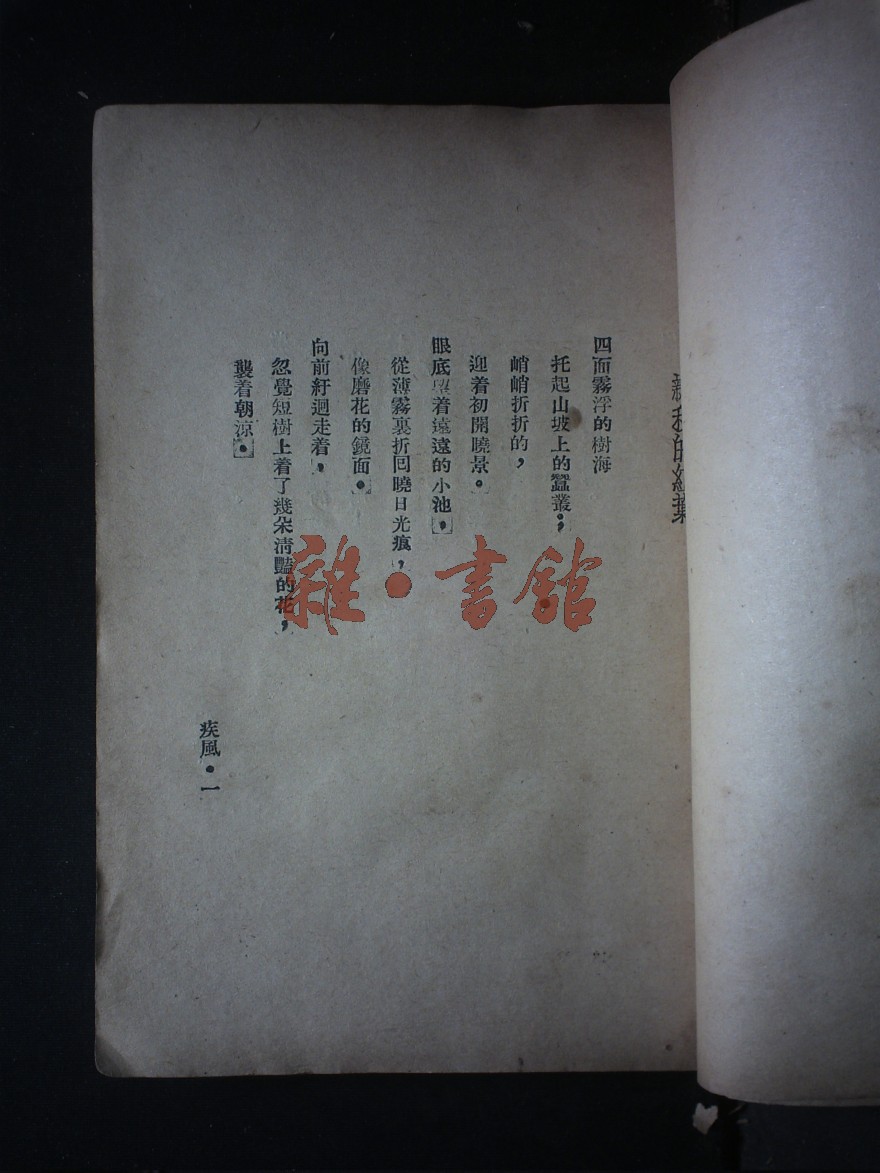 四面霧浮的樹海
托起山坡上的蠶叢；
峭峭折折的，
迎着初開曉景。
眼底望着遠遠的小池，
從薄霧裏折回曉日光痕，
像磨花的鏡面。
向前紆迴走着，
忽覺短樹上着了幾朵清豔的花，
襲着朝涼。
疾風·一
雜·書館